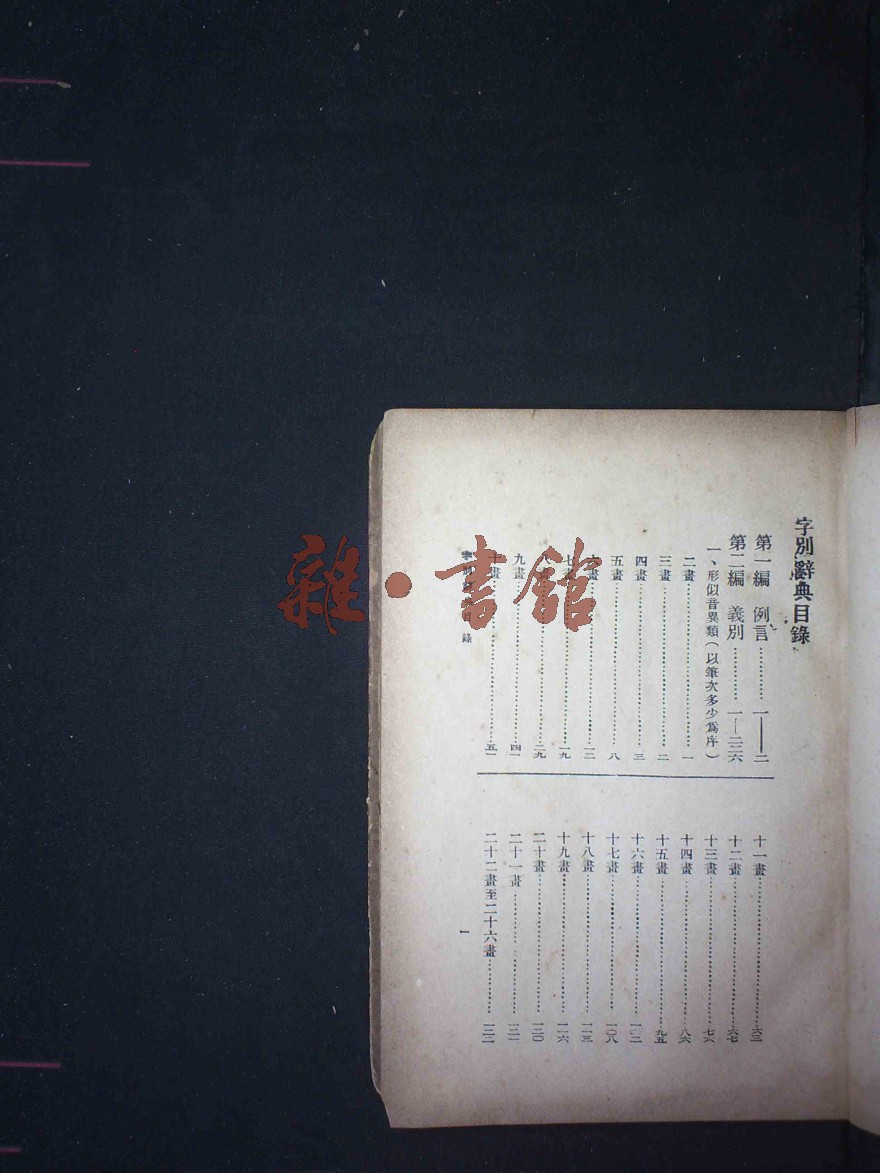 字別辭典目錄
第一編 例言…………一——二
第二編 義別…………一—二三六
一、形似音異類(以筆次多少為序)
二畫…………一
三畫…………二
四畫…………三
五畫…………八
六畫…………一三
七畫…………一九
八畫…………二九
九畫…………四一
十畫…………五一
十一畫…………六三
十二畫…………六七
十三畫…………七六
十四畫…………八六
十五畫…………九五
十六畫…………一〇二
十七畫…………一〇八
十八畫…………一一三
十九畫…………一二六
二十畫…………一三〇
二十一畫…………一三一
二十二畫至二十六畫…………一三三
字別辭典目錄
一
雜·書館